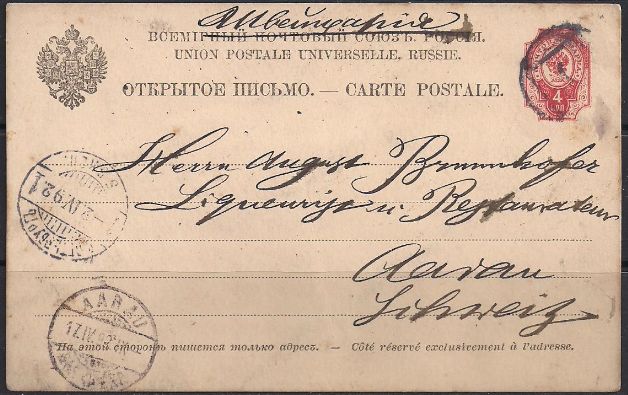 Швейцарія
ВСЕМІРНЫЙ ПОЧТОВЫЙ СОЮЗЪ. РОССІЯ.
UNION POSTALE UNIVERSELLE. RUSSIE.
ОТКРЫТОЕ ПИСЬМО. — CARTE POSTALE.
4
Herrn August Brunnhofer
Liqueurist u. Restaurateur
Aarau
Schweiz
AARAU
На этой сторонѣ пишется только адресъ. — Côté réservé exclusivement à l'adresse.